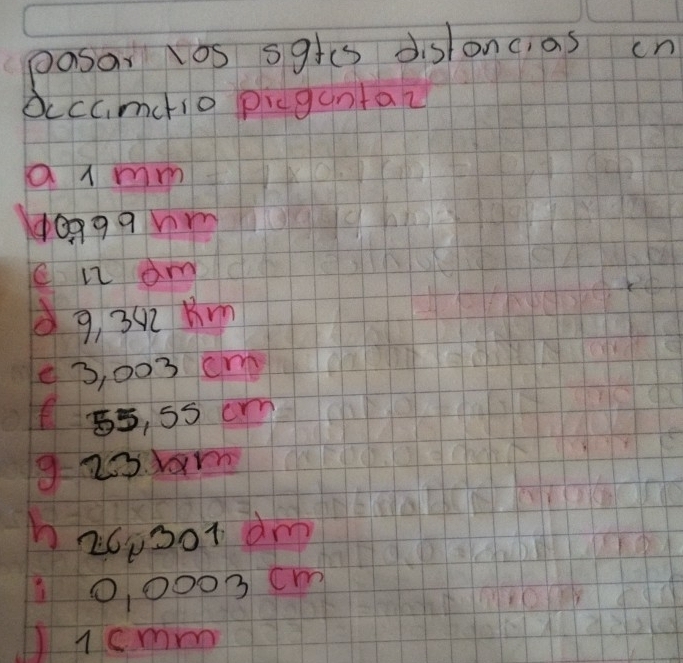 pasar los sgtes distancias en
decimetro preguntaz
a 1 mm
b 10,999 hm
c 12 dm
d 9,342 Km
e 3,003 cm
f 55,55 cm
g 23
h 26,301 dm
i 0,0003 cm
j 1 cmm